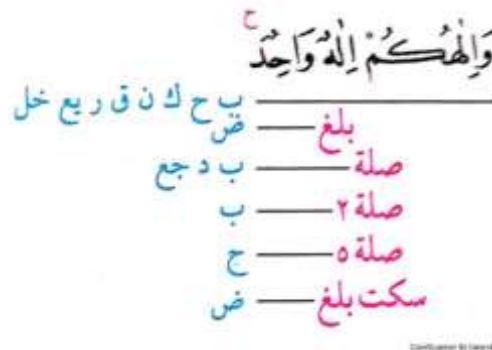 ح
وَاِلٰهُكُمْ اِلٰهٌ وَاحِدٌ
ب ح ك ن ق ر يع خل
بلغ ض
صلة ب د جع
صلة ٢ ب
صلة ٥ ح
سكت بلغ ض